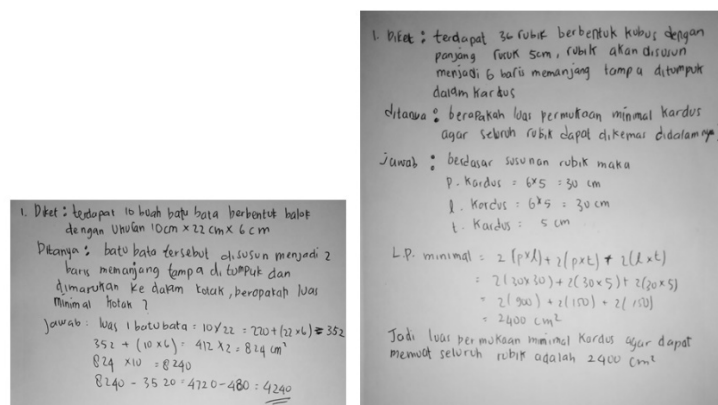 1. Diket : terdapat 10 buah batu bata berbentuk balok
dengan ukuran 10cm × 22cm × 6 cm
Ditanya : batu bata tersebut disusun menjadi 2
baris memanjang tampa di tumpuk dan
dimasukan ke dalam kotak, berapakah luas
minimal kotak ?
Jawab : luas 1 batu bata = 10×22 = 220 + (22×6) = 352
352 + (10×6) = 412 × 2 = 824 cm²
824 × 10 = 8240
8240 - 3520 = 4720 - 480 = 4240
1. Diket : terdapat 36 rubik berbentuk kubus dengan
panjang rusuk 5cm, rubik akan disusun
menjadi 6 baris memanjang tampa ditumpuk
dalam kardus
ditanya : berapakah luas permukaan minimal kardus
agar seluruh rubik dapat dikemas didalamnya
jawab : berdasar susunan rubik maka
p. kardus = 6×5 = 30 cm
l. kardus = 6×5 = 30 cm
t. kardus = 5 cm
L.P. minimal = 2(p×l) + 2(p×t) + 2(l×t)
= 2(30×30) + 2(30×5) + 2(30×5)
= 2(900) + 2(150) + 2(150)
= 2400 cm²
Jadi luas permukaan minimal kardus agar dapat
memuat seluruh rubik adalah 2400 cm²